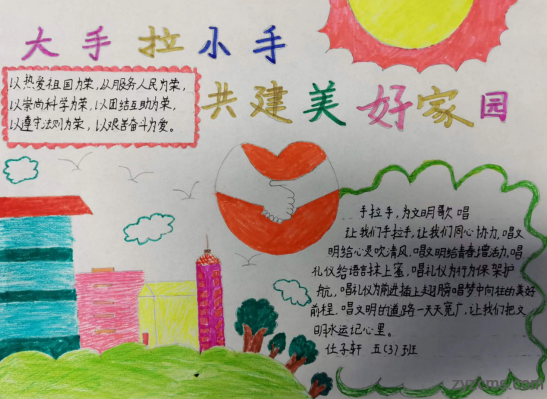 大手拉小手
共建美好家园
以热爱祖国为荣,以服务人民为荣,
以崇尚科学为荣,以团结互助为荣,
以遵守法则为荣,以艰苦奋斗为爱。
手拉手,为文明歌唱
让我们手拉手,让我们同心协力,唱文
明给心灵吹清风,唱文明给青春增活力,唱
礼仪给语言抹上蜜,唱礼仪为行为保驾护
航,唱礼仪为前进插上翅膀唱梦中向往的美好
前程,唱文明的道路一天天宽广,让我们把文
明永远记心里。
任子轩 五(3)班